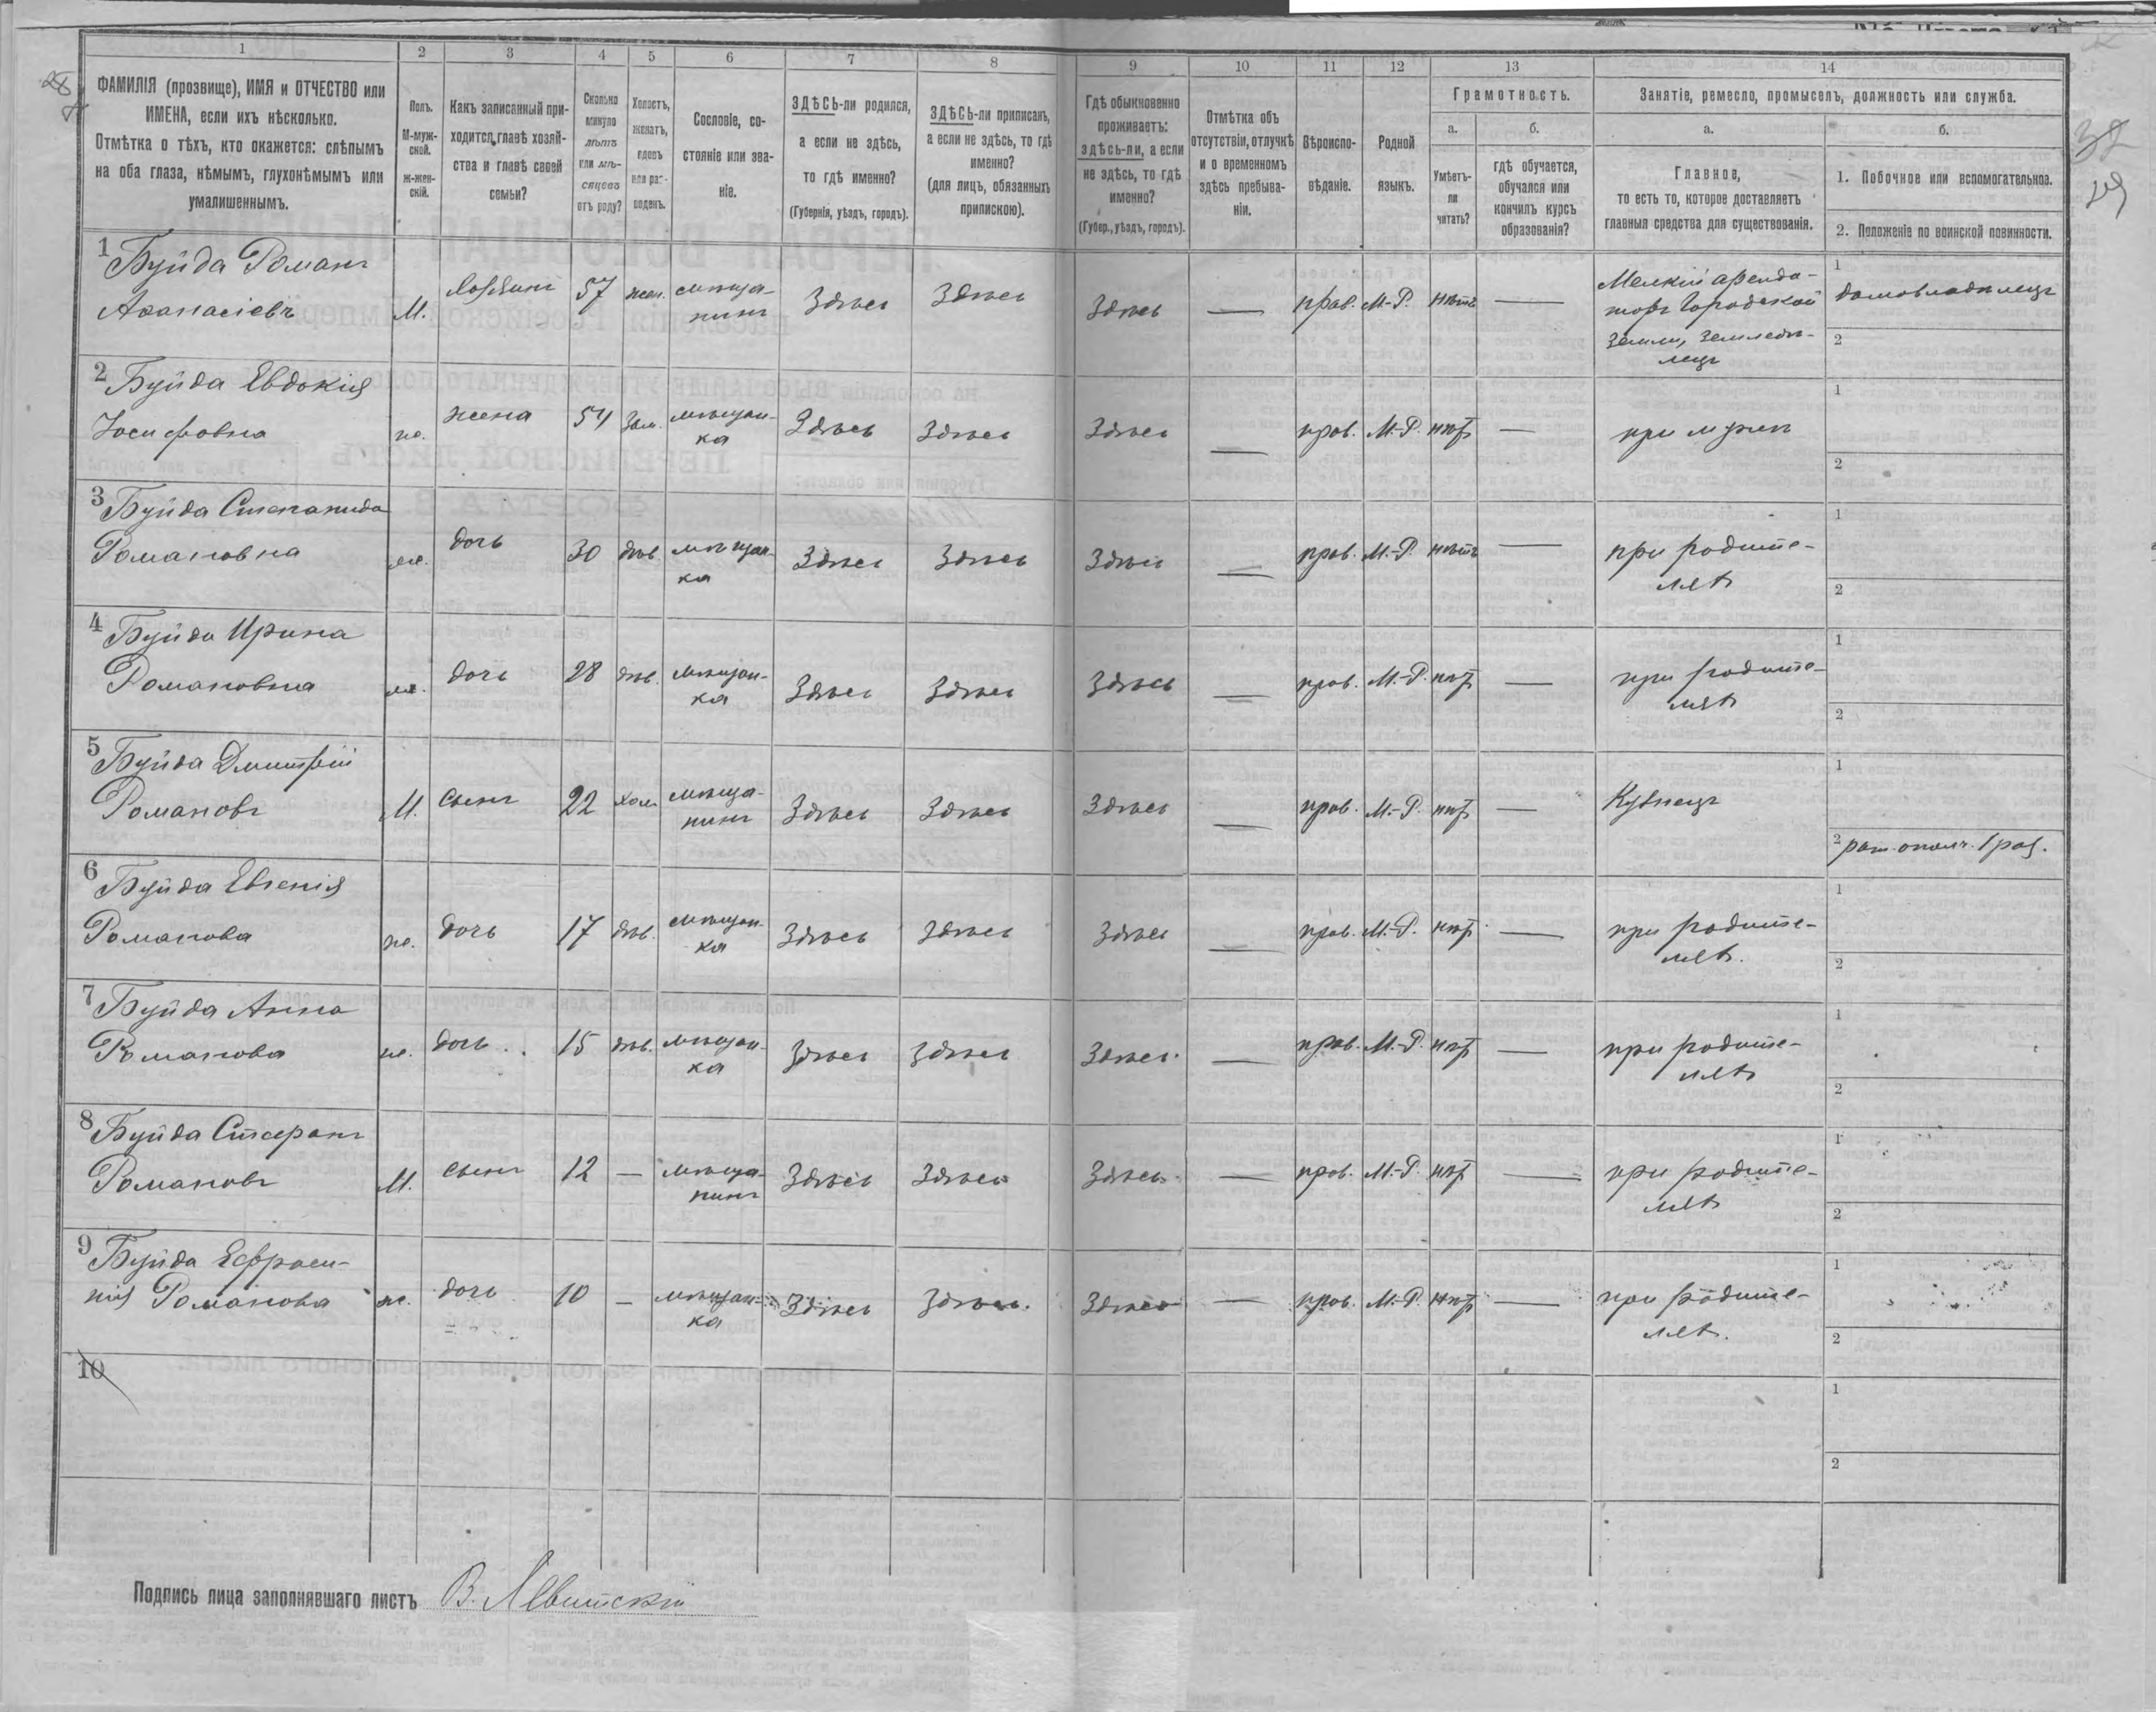 1 2 3 4 5 6 7 8 9 10 11 12 13 14
ФАМИЛІЯ (прозвище), ИМЯ и ОТЧЕСТВО или
ИМЕНА, если ихъ нѣсколько.
Отмѣтка о тѣхъ, кто окажется: слѣпымъ
на оба глаза, нѣмымъ, глухонѣмымъ или
умалишеннымъ.
Полъ.
М-муж-
ской.
ж-жен-
скій.
Какъ записанный при-
ходится главѣ хозяй-
ства и главѣ своей
семьи?
Сколько
минуло
лѣтъ
или мѣ-
сяцевъ
отъ роду?
Холостъ,
женатъ,
вдовъ
или раз-
веденъ.
Сословіе, со-
стояніе или зва-
ніе.
ЗДѢСЬ-ли родился,
а если не здѣсь,
то гдѣ именно?
(Губернія, уѣздъ, городъ).
ЗДѢСЬ-ли приписанъ,
а если не здѣсь, то гдѣ
именно?
(для лицъ, обязанныхъ
припискою).
Гдѣ обыкновенно
проживаетъ:
здѣсь-ли, а если
не здѣсь, то гдѣ
именно?
(Губер., уѣздъ, городъ).
Отмѣтка объ
отсутствіи, отлучкѣ
и о временномъ
здѣсь пребыва-
ніи.
Вѣроиспо-
вѣданіе.
Родной
языкъ.
Грамотность.
а.
Умѣетъ-
ли
читать?
б.
гдѣ обучается,
обучался или
кончилъ курсъ
образованія?
Занятіе, ремесло, промыселъ, должность или служба.
а.
Главное,
то есть то, которое доставляетъ
главныя средства для существованія.
б.
1. Побочное или вспомогательное.
2. Положеніе по воинской повинности.
1 Буйда Романъ
Аѳанасіевъ М. хозяинъ 57 жен. мѣща-
нинъ Здѣсь Здѣсь Здѣсь — прав. М.-Р. нѣтъ — Мелкій аренда-
торъ городской
земли, земледѣ-
лецъ
1 домовладѣлецъ
2
2 Буйда Евдокія
Іосифовна ж. жена 54 зам. мѣщан-
ка Здѣсь Здѣсь Здѣсь — прав. М.-Р. нѣт — при мужѣ
1
2
3 Буйда Степанида
Романовна ж. дочь 30 дѣв. мѣщан-
ка Здѣсь Здѣсь Здѣсь — прав. М.-Р. нѣтъ — при родите-
ляхъ
1
2
4 Буйда Ирина
Романовна ж. дочь 28 дѣв. мѣщан-
ка Здѣсь Здѣсь Здѣсь — прав. М.-Р. нѣт — при родите-
ляхъ
1
2
5 Буйда Дмитрій
Романовъ М. сынъ 22 хол. мѣща-
нинъ Здѣсь Здѣсь Здѣсь — прав. М.-Р. нѣт — Кузнецъ
1
2 рат. ополч. 1 раз.
6 Буйда Евгенія
Романова ж. дочь 17 дѣв. мѣщан-
ка Здѣсь Здѣсь Здѣсь — прав. М.-Р. нѣт — при родите-
ляхъ.
1
2
7 Буйда Анна
Романова ж. дочь 15 дѣв. мѣщан-
ка Здѣсь Здѣсь Здѣсь — прав. М.-Р. нѣт — при родите-
ляхъ
1
2
8 Буйда Стефанъ
Романовъ М. сынъ 12 — мѣща-
нинъ Здѣсь Здѣсь Здѣсь — прав. М.-Р. нѣт — при родите-
ляхъ
1
2
9 Буйда Ефроси-
нія Романова ж. дочь 10 — мѣщан-
ка Здѣсь Здѣсь. Здѣсь — прав. М.-Р. нѣт — при родите-
ляхъ.
1
2
10
1
2
Подпись лица заполнявшаго листъ В. Левитскій